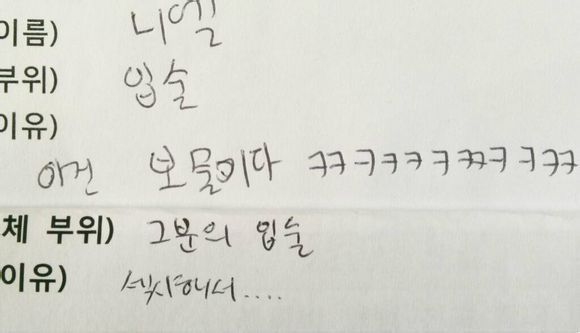 이름) 니엘
부위) 입술
이유)
이건 보물이다 ㅋㅋㅋㅋㅋㅋㅋㅋㅋㅋㅋ
체 부위) 그분의 입술
이유) 섹시해서....